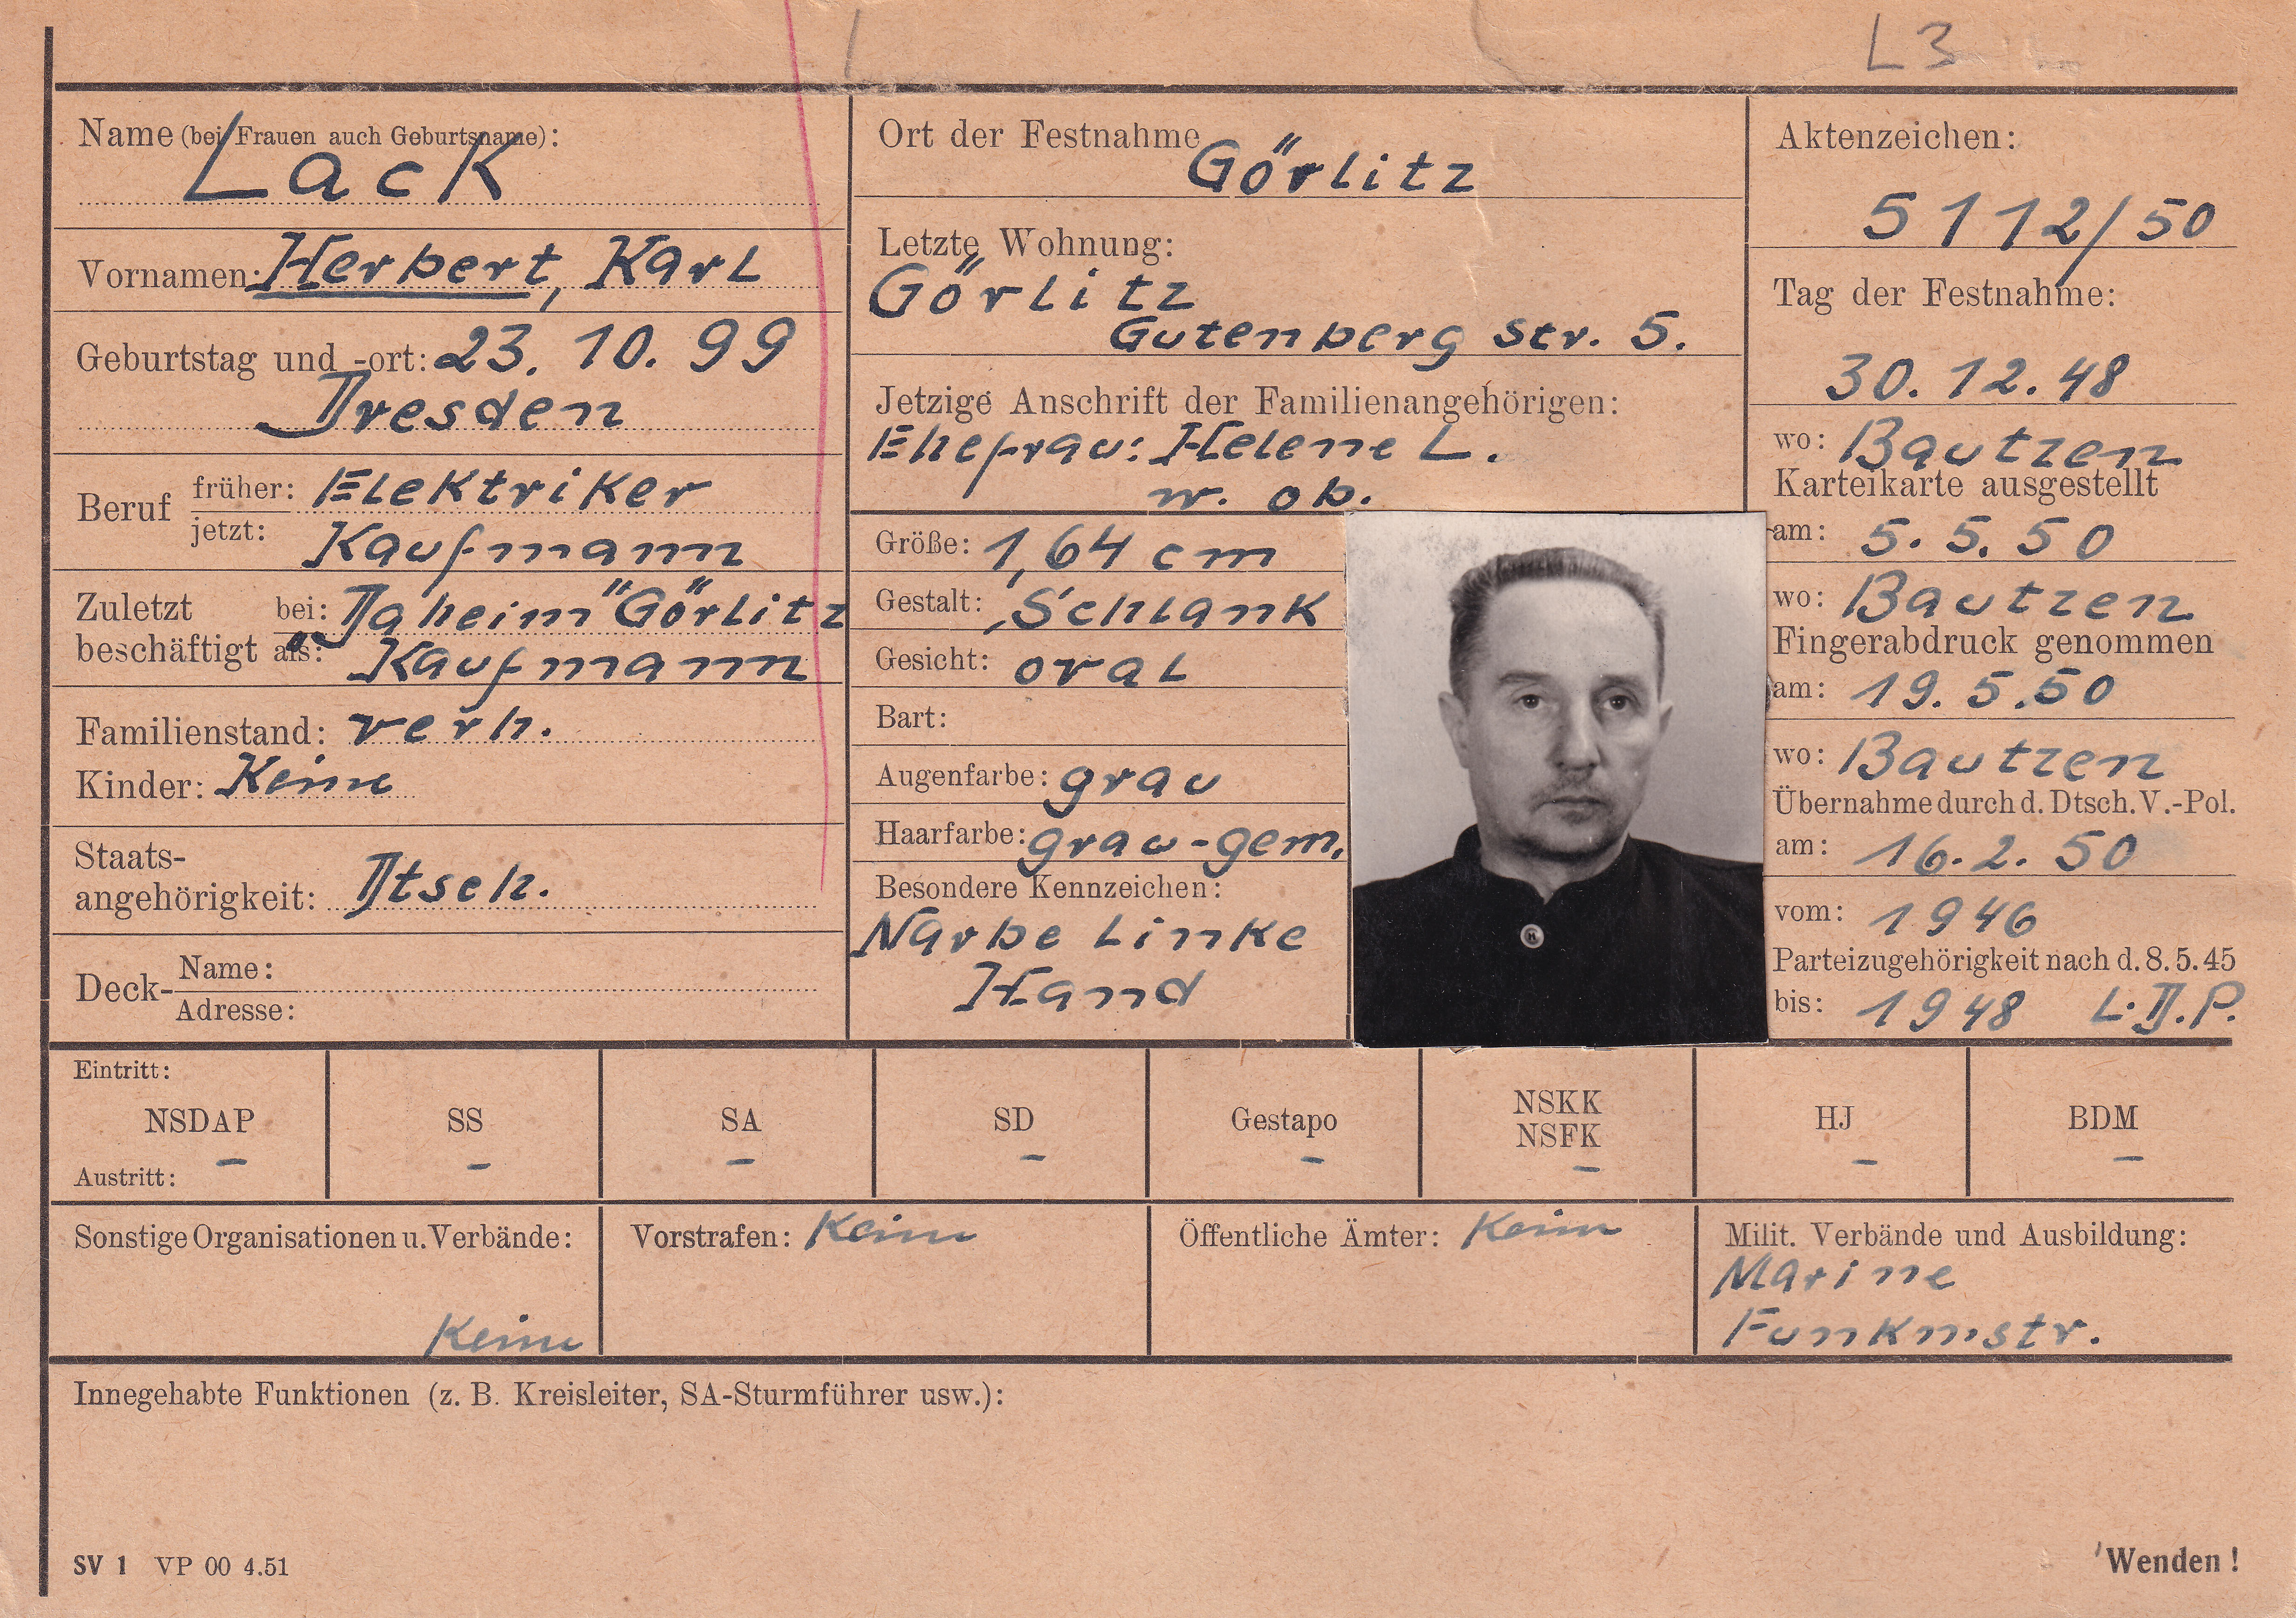 L 3
Name (bei Frauen auch Geburtsname):
Lack
Vornamen: Herbert, Karl
Geburtstag und -ort: 23. 10. 99
Dresden
Beruf früher: Elektriker
jetzt: Kaufmann
Zuletzt beschäftigt bei: "Daheim" Görlitz
als: Kaufmann
Familienstand: verh.
Kinder: Keine
Staats-
angehörigkeit: Dtsch.
Deck- Name:
Adresse:
Ort der Festnahme Görlitz
Letzte Wohnung:
Görlitz
Gutenberg str. 5.
Jetzige Anschrift der Familienangehörigen:
Ehefrau: Helene L.
w. ob.
Größe: 1,64 cm
Gestalt: Schlank
Gesicht: oval
Bart:
Augenfarbe: grau
Haarfarbe: grau-gem.
Besondere Kennzeichen:
Narbe Linke
Hand
Aktenzeichen:
5112/50
Tag der Festnahme:
30. 12. 48
wo: Bautzen
Karteikarte ausgestellt
am: 5. 5. 50
wo: Bautzen
Fingerabdruck genommen
am: 19. 5. 50
wo: Bautzen
Übernahme durch d. Dtsch. V.-Pol.
am: 16. 2. 50
vom: 1946
Parteizugehörigkeit nach d. 8. 5. 45
bis: 1948 L.D.P.
Eintritt:
NSDAP SS SA SD Gestapo NSKK HJ BDM
NSFK
– – – – – – – –
Austritt:
Sonstige Organisationen u. Verbände:
Keine
Vorstrafen: Keine
Öffentliche Ämter: Keine
Milit. Verbände und Ausbildung:
Marine
Funkmstr.
Innegehabte Funktionen (z. B. Kreisleiter, SA-Sturmführer usw.):
SV 1 VP 00 4.51
Wenden !